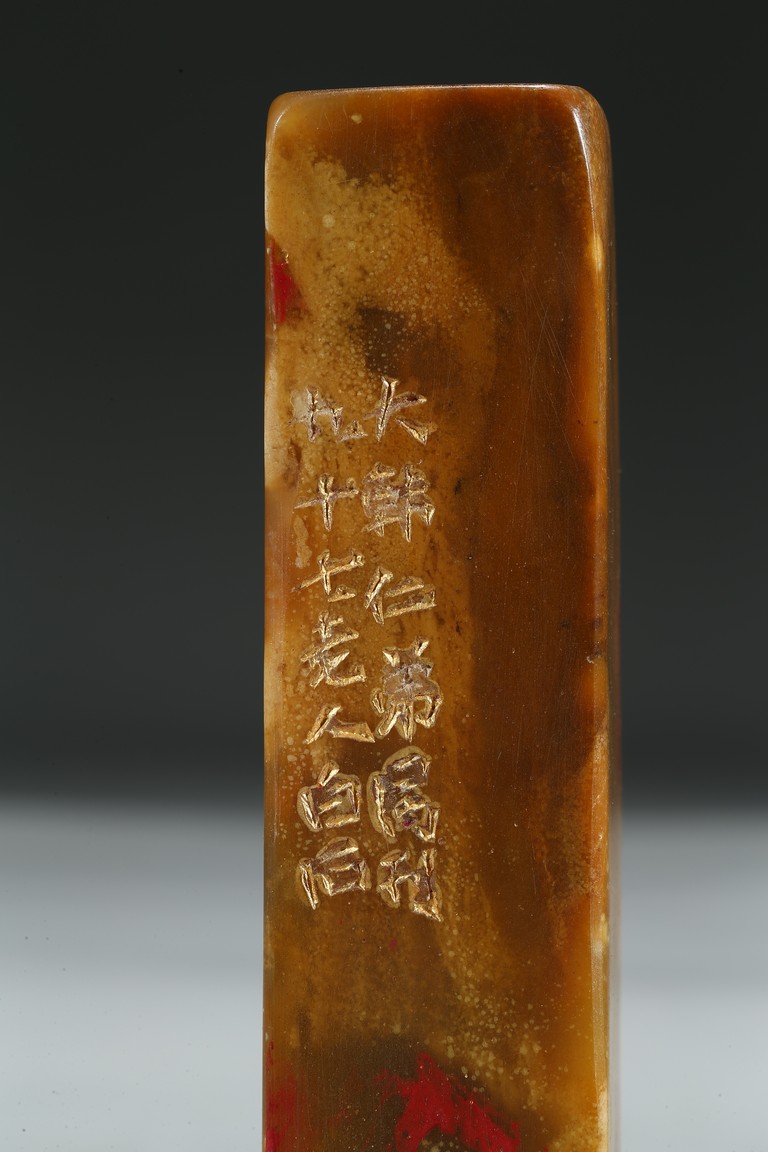 大韩仁弟属刊
九十七老人白石